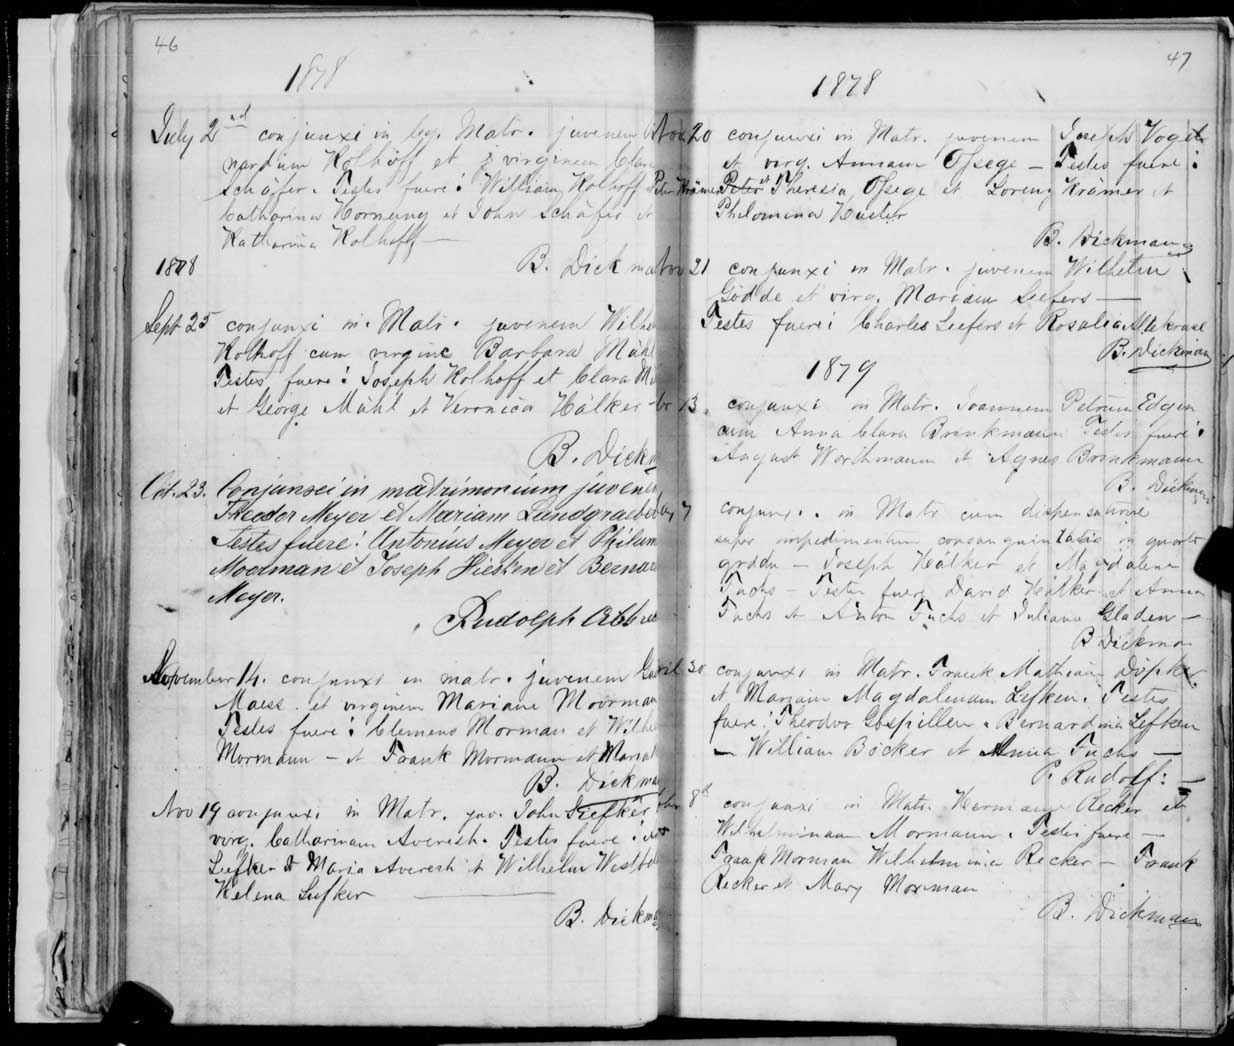 46
1878
July 2nd conjunxi in leg. Matr. juvenem
nardum Kolhoff et virginem Clara
Schäfer. Testes fuere: William Kolhoff
Catharina Hornung et John Schäfer et
Katharina Kolhoff —
B. Dickma
1878
Sept 25 conjunxi in Matr. juvenem Wilh
Kolhoff cum virgine Barbara Mühl
Testes fuere: Joseph Kolhoff et Clara
et George Mühl et Veronica Hälker
B. Dickm
Oct. 23. Conjunxi in matrimonium juvenem
Theodor Meyer et Mariam Landgraeber
Testes fuere: Antonius Meyer et Philum
Moorman et Joseph Hiesken et Bernar
Meyer.
Rudolph
November 14. conjunxi in matr. juvenem
Maess. et virginem Mariane Moorman
Testes fuere: Clemens Morman et Wilhe
Mormann — et Frank Mormann et Maria
B. Dickma
Nov 19 conjunxi in Matr. juv. John Liefker
virg. Catharinam Averesh. Testes fuere:
Liefker & Maria Averesh et Wilhelm West
Helena Liefker —
B. Dickma
47
1878
Nov 20 conjunxi in Matr. juvenem Joseph Vogel
et virg. Annam Ossege — Testes fuere:
Peter Krämer Peter et Theresia Ossege et Lorenz Krämer et
Philomena Huster
B. Dickmann
Nov 21 conjunxi in Matr. juvenem Wilhelm
Gödde et virg. Mariam Siefers —
Testes fuere: Charles Siefers et Rosalia
B. Dickman
1879
13. conjunxi in Matr. Joannem Petrum Edgen
cum Anna Clara Brinkmann Testes fuere:
August Worthmann et Agnes Brinkmann
B. Dickman
7 conjunx. in Matr cum dispensatione
super impedimentum consanguinitatis in quarto
gradu — Joseph Hälker et Magdalena
Fuchs — Testes fuere David Hälker et Anna
Fuchs et Anton Fuchs et Juliana Gladen —
B Dickman
April 30 conjunxi in Matr. Frank Mathiam
et Mariam Magdalenam Lefken. Testes
fuere: Theodor Bernardina Lefken
— William Böcker et Anna Fuchs —
P. Rudolf: —
8th conjunxi in Matr. Hermann Recker et
Wilhelminam Mormann. Testes fuere —
Frank Morman Wilhelmina Recker — Frank
Recker et Mary Morman
B. Dickmann